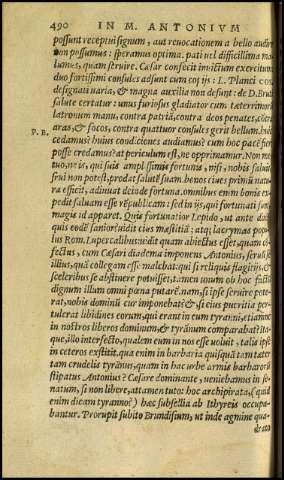 490 IN M. ANTONIVM
possunt receptui signum, aut reuocationem a bello audire
non possumus: speramus optima. pati uel difficillima ma-
lumus, quam seruire. Cæsar confecit inuictum exercitum
duo fortissimi consules adsunt cum copijs: L. Planci con
designati uaria, & magna auxilia non desunt: de D. Bruti
salute certatur: unus furiosus gladiator cum tæterrimorum
latronum manu, contra patriā, contra deos penates, cōtra
aras, & focos, contra quattuor consules gerit bellum. huic
P. R. cedamus? huius condiciones audiamus? cum hoc pacē fieri
posse credamus? at periculum est, ne opprimamur. Non me-
tuo, ne is, qui suis amplissimis fortunis, nisi, nobis saluis
frui non potest, prodat salutē suam. bonos ciues primū natu
ra efficit, adiuuat deīde fortuna. omnibus enim bonis ex
pedit saluam esse rēpublicam: sed in ijs, qui fortunati sunt
magis id apparet. Quis fortunatior Lepido, ut ante dixi
quis eodē sanior? uidit eius mæstitiā: atq; lacrymas popu-
lus Rom. Lupercalibus: uidit quam abiectus esset, quam cō
fectus, cum Cæsari diadema imponens Antonius, seruū se
illius, quā collegam esse malebat: qui si reliquis flagitijs, &
sceleribus se abstinere potuisset, tamen unum ob hoc factū
dignum illum omni pœna putarē. nam, si ipse seruire pote-
rat, nobis dominū cur imponebat? & si eius pueritia per-
tulerat libidines eorum, qui erant in eum tyranni, etiamne
in nostros liberos dominum, & tyrānum comparabat? ita-
que, illo interfecto, qualem eum in nos esse uoluit, talis ipse
in ceteros exstitit. qua enim in barbaria quisquā tam tæter
tam crudelis tyrānus, quam in hac urbe armis barbarorū
stipatus Antonius? Cæsare dominante, ueniebamus in se-
natum, si non libere, at tamen tuto: hoc archipirata, (quid
enim dicam tyranno?) hæc subsellia ab Ithyreis occupa-
bantur. Prorupit subito Brundisium, ut inde agmine qua-
drato